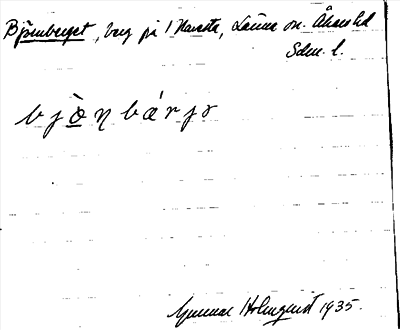 Björnberget, berg på 1 Navesta, Länna sn. Åkers hd
Sdm. l.
bjò̱ηbárjə
Gunnar Holmquist 1935.